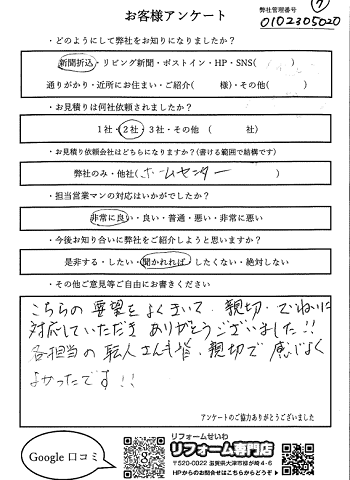 お客様アンケート
弊社管理番号
0102305020
・どのようにして弊社をお知りになりましたか？
新聞折込・リビング新聞・ポストイン・HP・SNS(　　　)
通りがかり・近所にお住まい・ご紹介(　　　様)・その他(　　　)
・お見積りは何社依頼されましたか？
1社・2社・3社・その他　(　　　社)
・お見積り依頼会社はどちらになりますか？(書ける範囲で結構です)
弊社のみ・他社(ホームセンター　　　)
・担当営業マンの対応はいかがでしたか？
非常に良い・良い・普通・悪い・非常に悪い
・今後お知り合いに弊社をご紹介しようと思いますか？
是非する・したい・聞かれれば・したくない・絶対しない
・その他ご意見等ご自由にお書きください
こちらの要望をよくきいて、親切、ていねいに
対応していただきありがとうございました!!
各担当の職人さんも皆、親切で感じよく
よかったです!!
アンケートのご協力ありがとうございました
Google 口コミ
リフォームせいわ
リフォーム専門店
〒520-0022 滋賀県大津市柳が崎4-6
HPからのお問合せはこちらからどうぞ▶